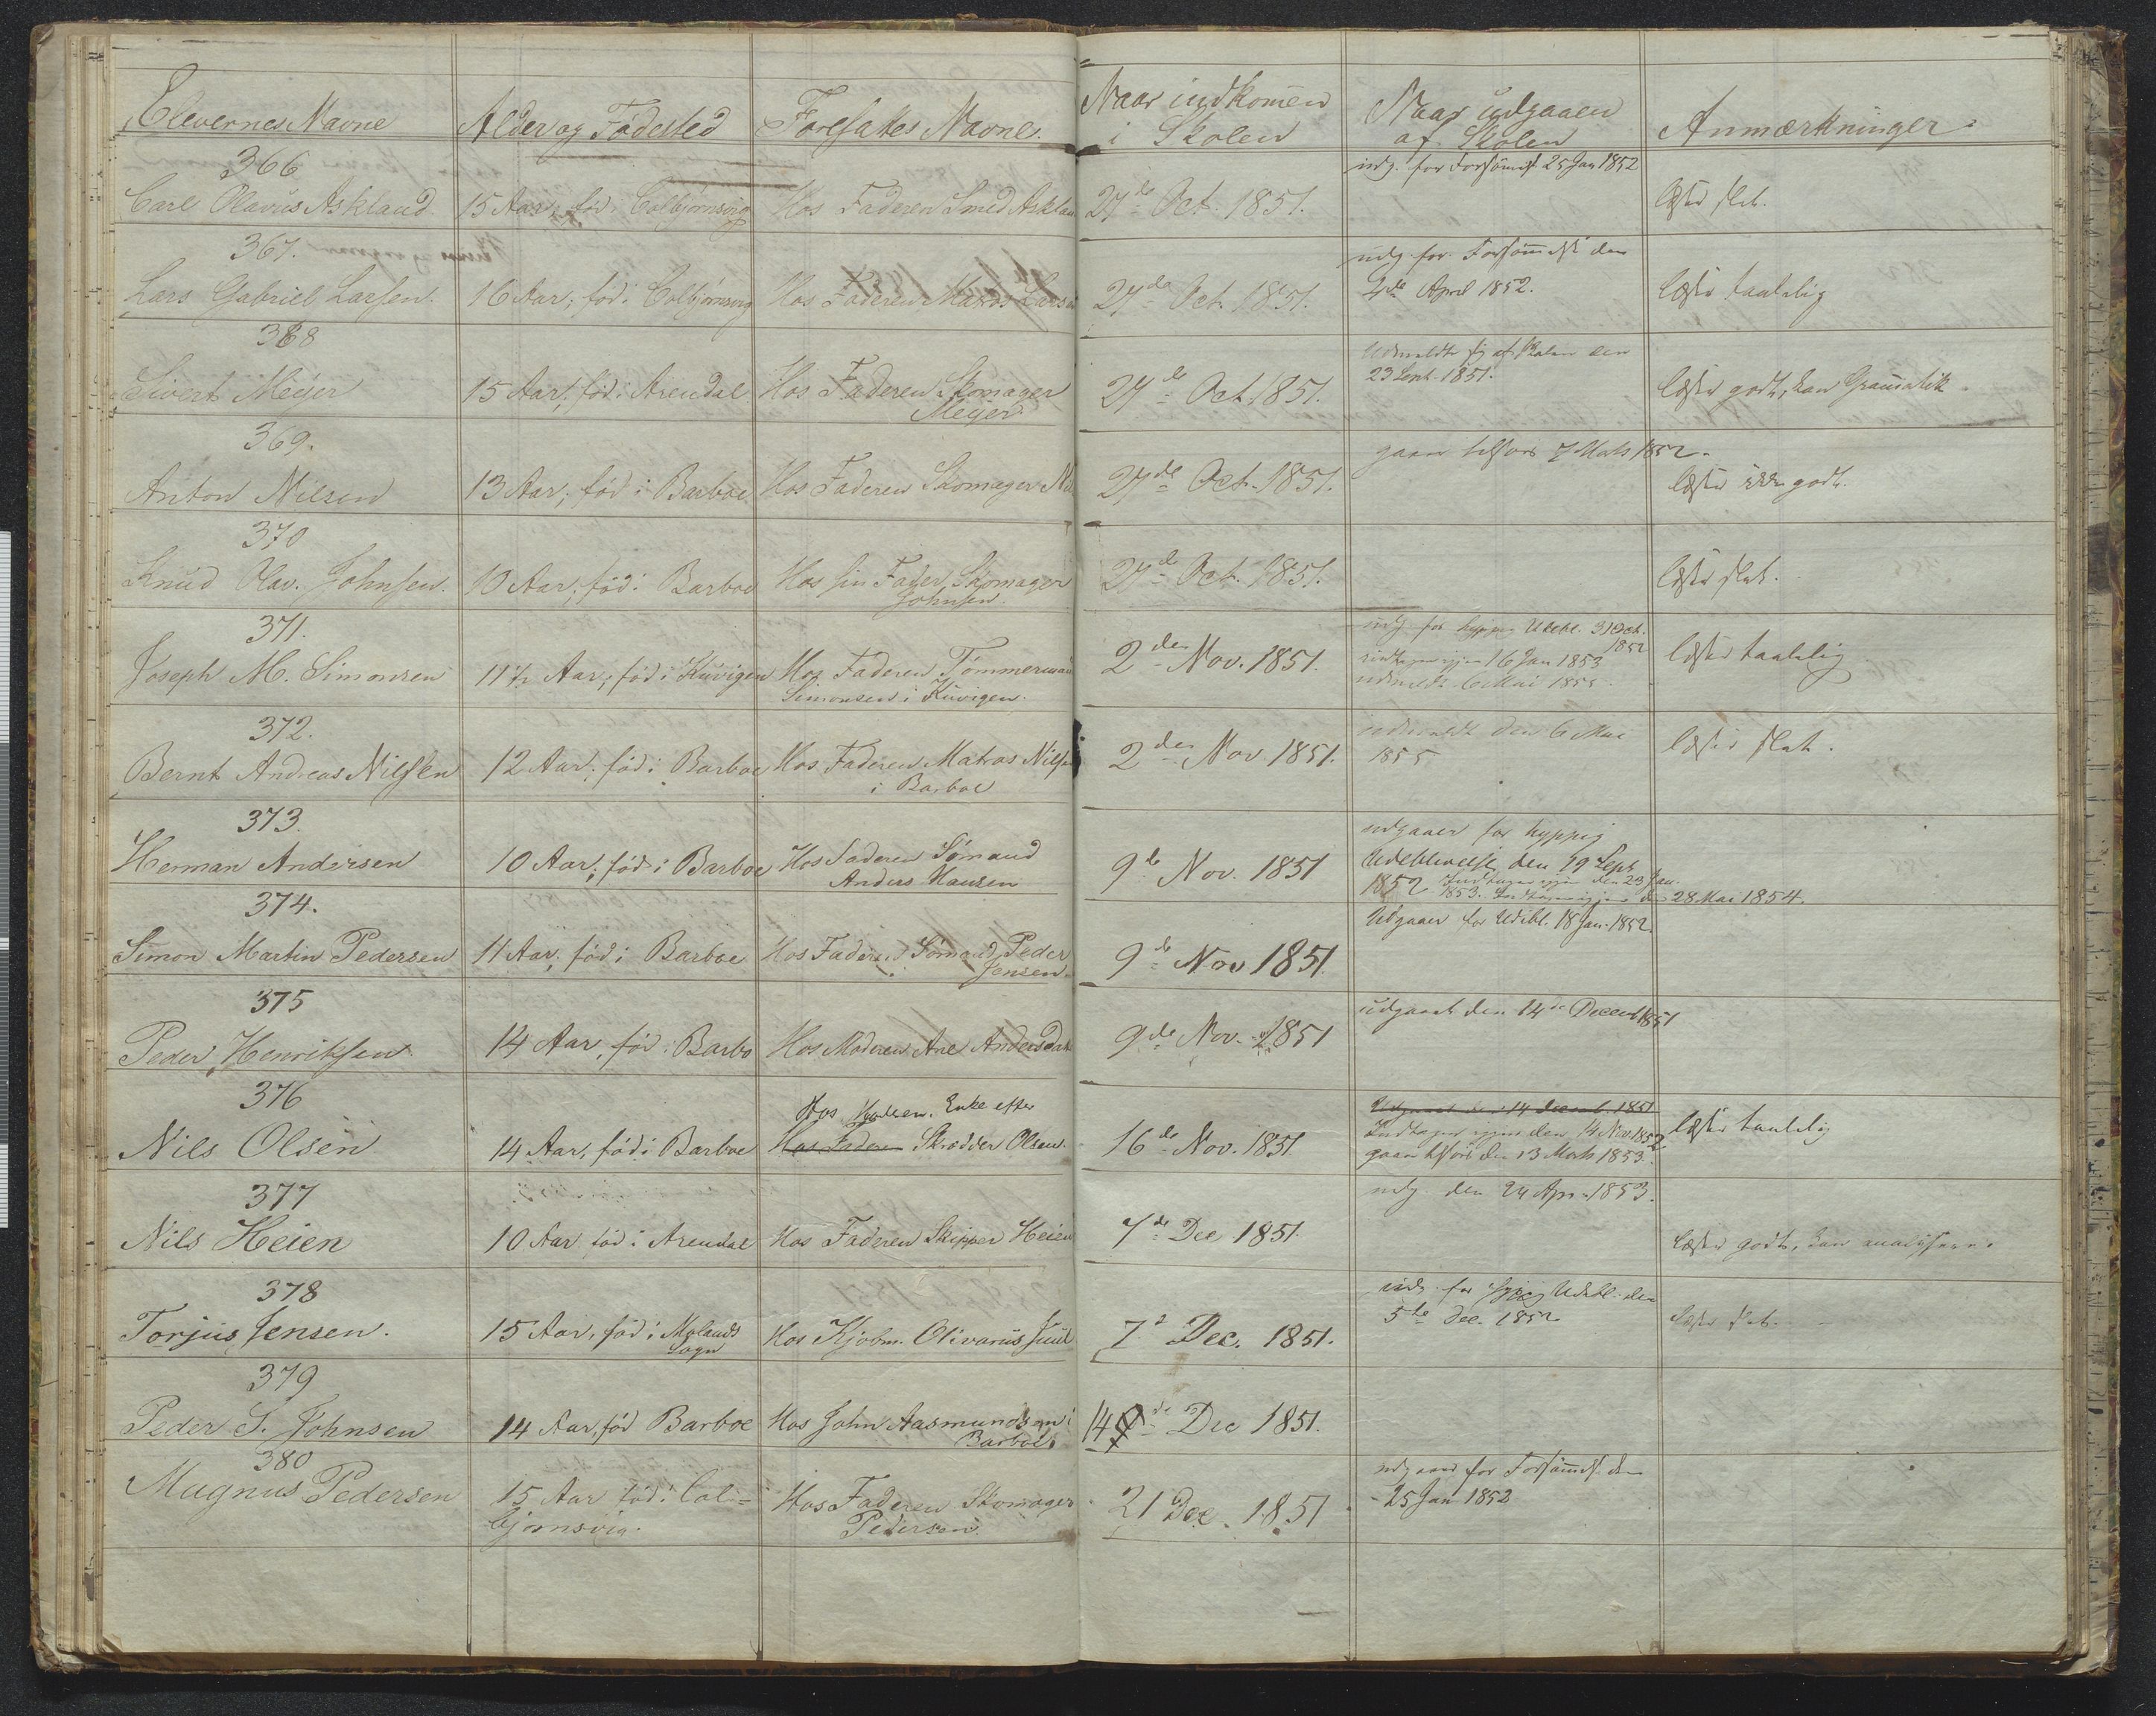 Elevernes Navne	Alder og Födested	Foresattes Navne	Naar indkommen i Skolen	Naar udgaaen af Skolen	Anmærkninger
366
Carl Olavus Askland	15 Aar, föd i Colbjörnsvig	Hos Faderen Smed Asklan	27de Oct. 1851.	udg. for Forsömmelse 25 Jan 1852	læser slet.
367.
Lars Gabriel Larsen	16 Aar, föd i Colbjörnsvig	Hos Faderen	27de Oct. 1851.	udg. for Forsömmelse den 4de April 1852.	læser taalelig
368
Sivert Meyer	15 Aar, föd i Arendal	Hos Faderen Skomager Meyer	27de Oct. 1851.	Udmeldte sig af Skolen den 23 Sept. 1851.	læser godt, kan Grammatik
369.
Anton Nilsen	13 Aar, föd i Barboe	Hos Faderen Skomager	27de Oct. 1851.	gaaer tilsøes 7 Marts 1852	læser ikke godt.
370
Knud Olav. Johnsen.	10 Aar, föd i Barboe	Hos sin Fader, Skomager Johnsen.	27de Oct. 1851.	læser slet.
371.
Joseph M. Simonsen	11½ Aar, föd i Kuvigen	Hos Faderen Tömmermand Simonsen i Kuvigen.	2den Nov. 1851.	udg for hyppig Udebl. 31 Oct. 1852 indtagen igjen 16 Jan 1853 udmeldt 6 Mai 1855	læser taalelig
372.
Bernt Andreas Nilsen	12 Aar, föd i Barboe	Hos Faderen Matros Nilsen i Barboe	2den Nov. 1851.	udmeldt den 6 Mai 1855	læser slet.
373.
Herman Andersen	10 Aar, föd i Barboe	Hos Faderen Sömand Anders Hansen	9de Nov. 1851	udgaaer for hyppig Udeblivelse den 19 Sept 1852 Indtagen igjen den 23 Jan. 1853. Indtagen igjen den 28 Mai 1854.
374.
Simon Martin Pedersen	11 Aar, föd i Barboe	Hos Faderen Sömand Peder Jensen	9de Nov 1851.	Udgaaer for Udebl. 18 Jan. 1852.
375
Peder Henriksen	14 Aar, föd i Barbo	Hos Moderen Ane Andersdatr	9de Nov. 1851	udgaaet den 14de Decemb 1851
376
Nils Olsen	14 Aar, föd i Barboe	Hos Moderen. Enke efter Hos Faderen Skrædder Olsen	16de Nov. 1851	Udgaaet den 14 Decemb. 1851 Indtagen igjen den 14 Nov. 1852 gaaer tilsøes den 13 Marts 1853.	læser taalelig
377
Nils Heien	10 Aar föd i Arendal	Hos Faderen Skipper Heien	7de Dec 1851.	udg den 24 Apr. 1853.	læser godt, kan analysere.
378
Torjus Jensen.	15 Aar, föd i Molands Sogn	Hos Kjöbm. Olivarius Juul	7de Dec. 1851.	udg. for hyppig Udebl. den 5te Dec. 1852	læser slet.
379
Peder S. Johnsen	14 Aar, föd Barboe	Hos John Aasmundsen i Barboe	14de Dec 1851.
380
Magnus Pedersen	15 Aar föd i Colbjörnsvig.	Hos Faderen Skomager Pedersen.	21 Dec. 1851	udgaaer for Forsömmelse den 25 Jan 1852